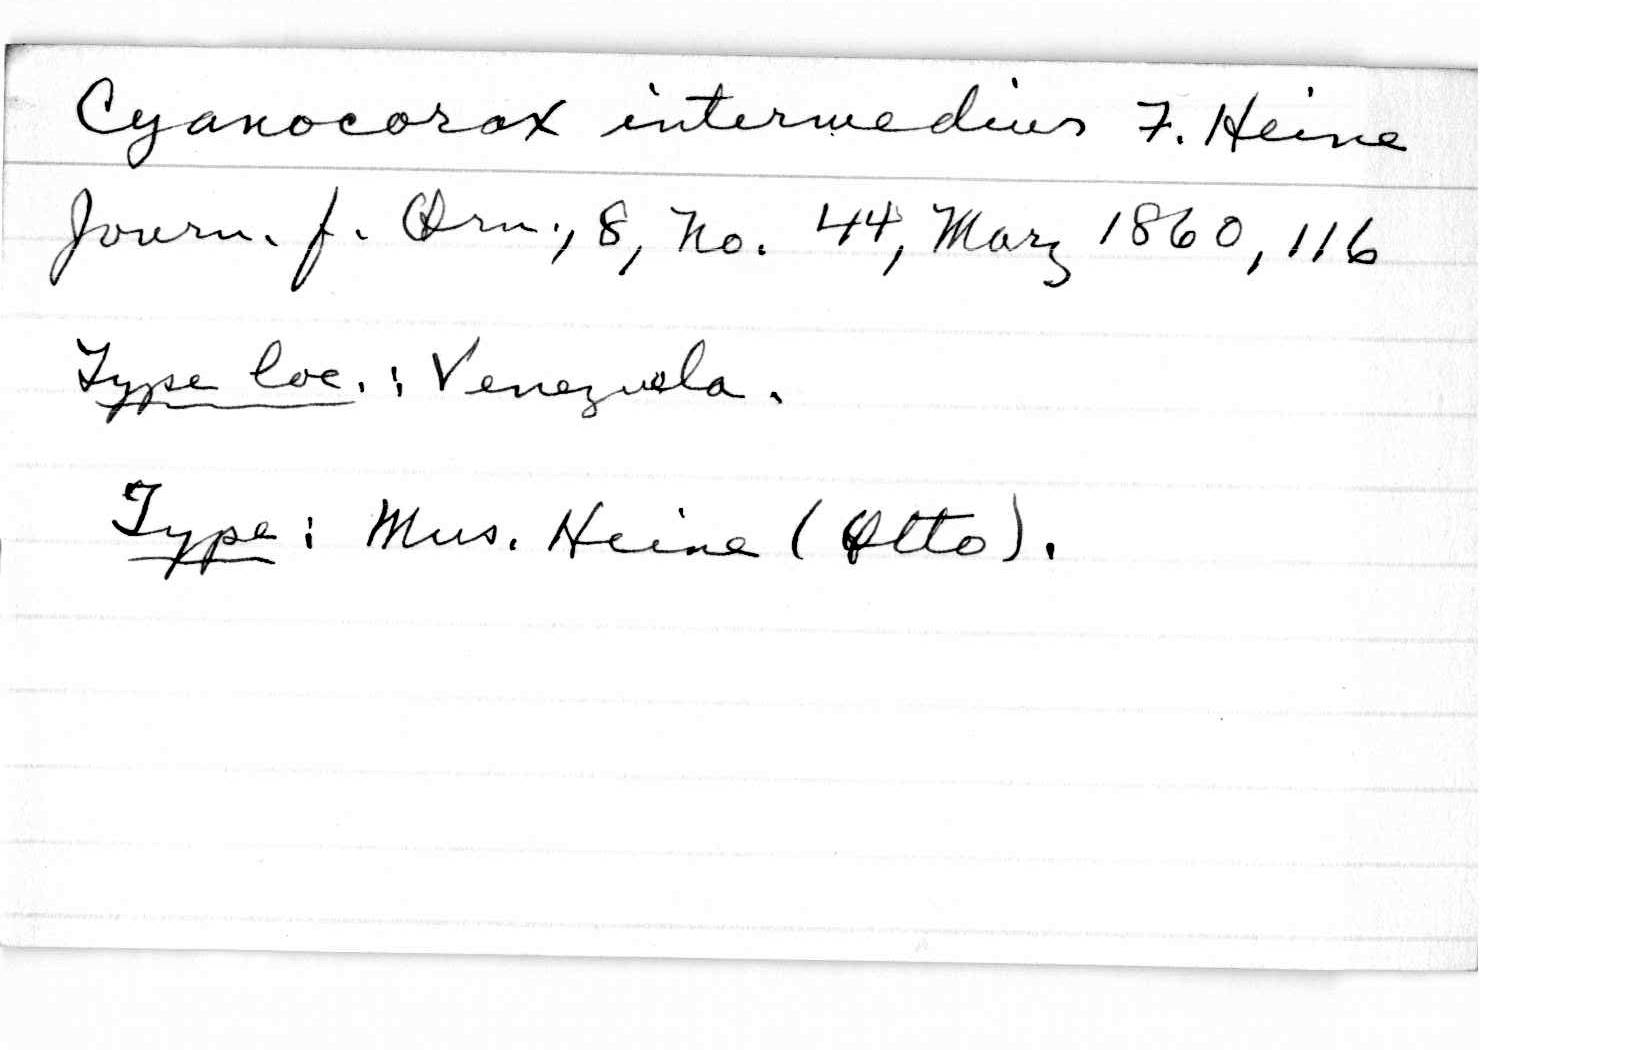 Cyanocorax intermedius F. Heine
Journ. f. Orn., 8, No. 44, Marz 1860, 116
Type loc.: Venezuela.
Type: Mus. Heine (Otto).